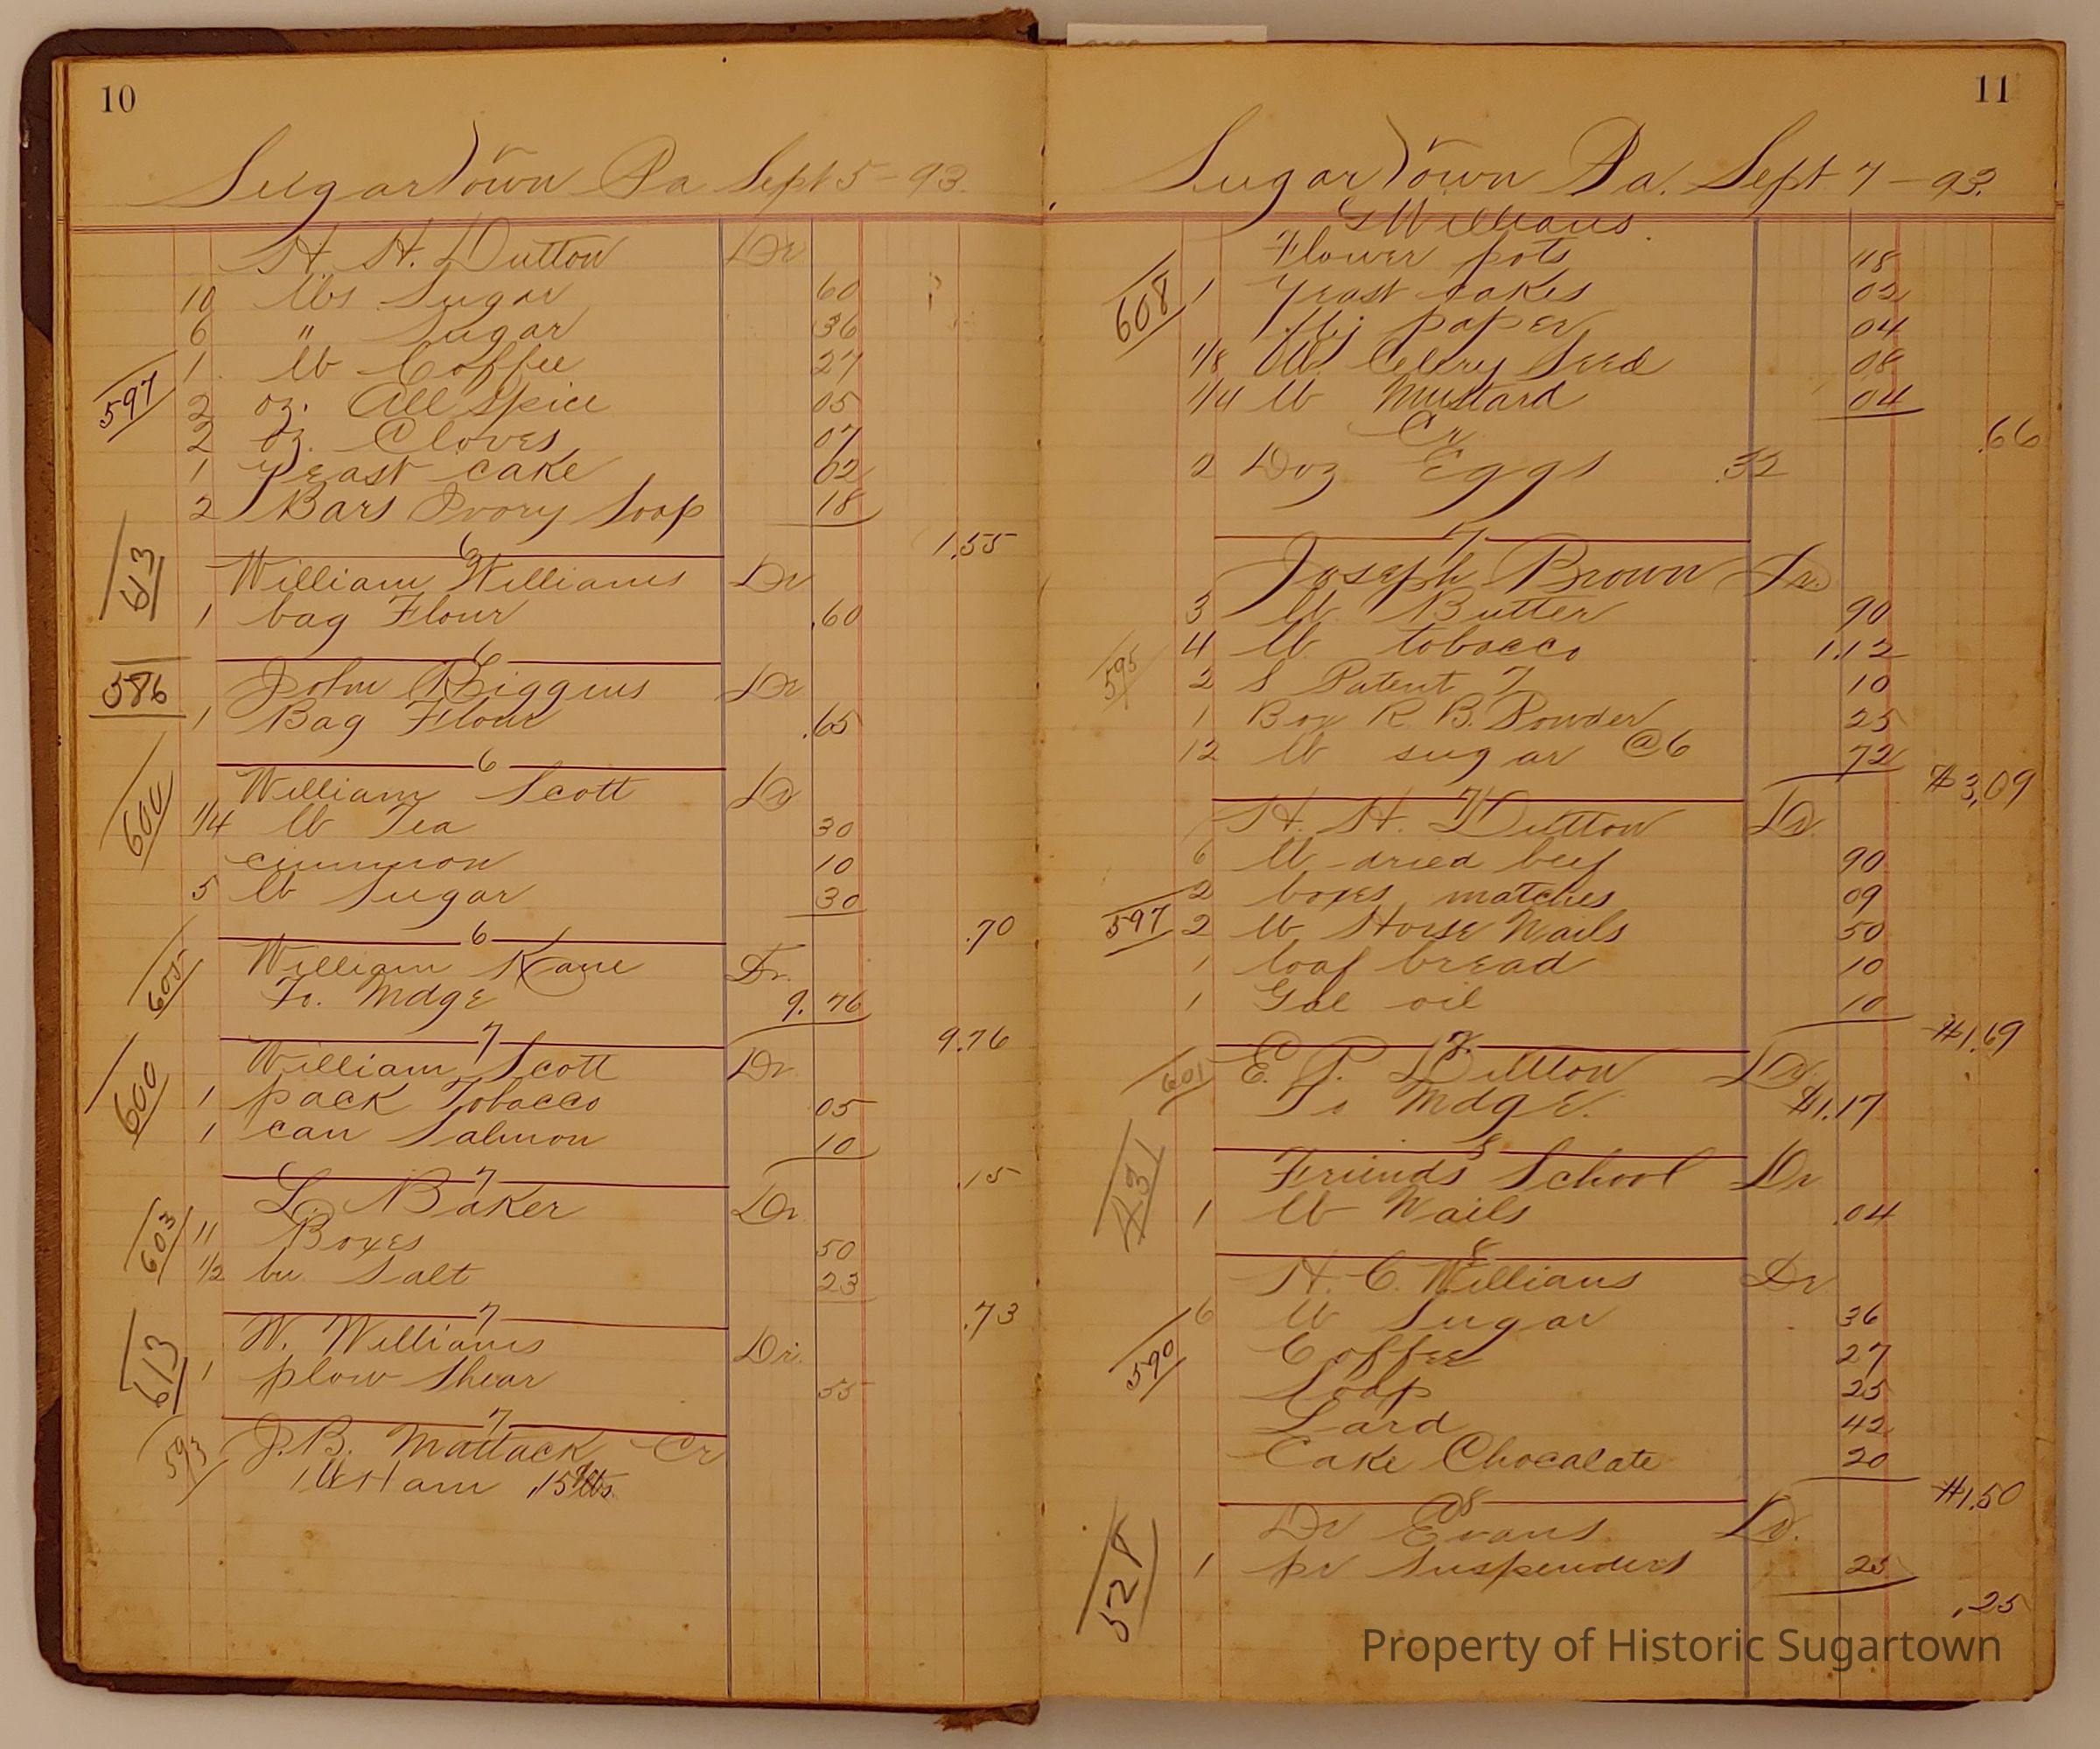 10
Sugartown Pa Sept 5-93.
H. H. Dutton Dr
10 lbs Sugar 60
6 " Sugar 36
597
1 lb Coffee 27
2 oz. All Spice 05
2 oz. Cloves 07
1 Yeast cake 02
2 Bars Ivory Soap 18
1.55
6
613
William Williams Dr
1 bag Flour .60
6
586
John Biggins Dr
1 Bag Flour .65
6
600
William Scott Dr
1/4 lb Tea 30
cinnimon 10
5 lb Sugar 30
.70
6
605
William Kane Dr.
To. Mdge 9.76
9.76
7
600
William Scott Dr
1 pack Tobacco 05
1 can Salmon 10
.15
7
603
L. Baker Dr
11 Boxes 50
1/2 bu Salt 23
.73
7
613
W. Williams Dr.
1 plow Shear 55
7
593
J. B. Mattack Cr
Ham
11
Sugartown Pa. Sept 7-93.
G Williams
608
Flower pots 48
1 Yeast cakes 02
paper 04
1/8 lb. Celery Seed 08
1/4 lb Mustard 04
.66
Cr
2 Doz Eggs .32
7
595
Joseph Brown Dr.
3 lb Butter 90
4 lb tobacco 1.12
2 S Patent 7 10
1 Box R. B. Powder 25
12 lb sugar @6 72
$3,09
7
597
H. H. Dutton Dr.
6 lb dried beef 90
2 boxes matches 09
2 lb Horse Nails 50
1 loaf bread 10
1 Gal oil 10
$1.69
601
E. P. Dutton Dr.
To Mdge. $1.17
8
431
Friends School Dr
1 lb Nails .04
8
590
H. C. Willians Dr
6 lb Sugar 36
Coffee 27
Soap 25
Lard 42
Cake Chocalate 20
$1.50
8
528
Dr Evans Dr.
1 pr Suspenders 25
.25
Property of Historic Sugartown